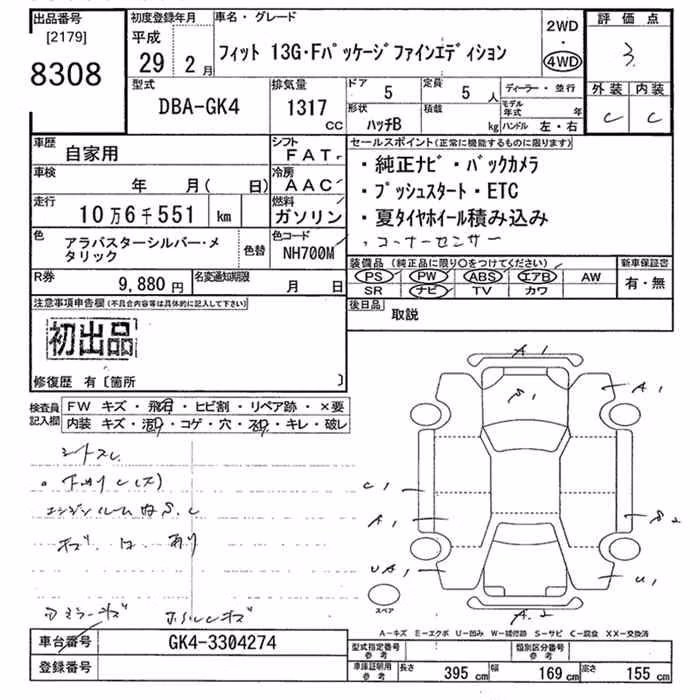 出品番号 初度登録年月 車名・グレード 評価点
[2179] 平成 2WD
8308 29 2月 フィット 13G・Fパッケージファインエディション ・ 4WD 3.
型式 排気量 ドア 5 定員 5人 ディーラー・並行 外装 内装
DBA-GK4 1317CC 形状 ハッチB 積載 kg モデル年式 年 ハンドル 左・右 C C
車歴 自家用 シフト FAT セールスポイント(正常に機能するものに限ります)
車検 年 月( 日) 冷房 AAC ・純正ナビ・バックカメラ
走行 10万6千551 km 燃料 ガソリン ・プッシュスタート・ETC
・夏タイヤホイール積み込み
色 アラバスターシルバー・メタリック 色替 色コード NH700M ・コーナーセンサー
装備品(純正品に限り○をつけてください) 新車保証書
PS PW ABS エアB AW 有・無
SR ナビ TV カワ
R券 9,880円 名変通知期限 月 日
後日品 取説
注意事項申告欄(不具合内容等は具体的に記入して下さい)
初出品
修復歴 有〔箇所 〕
検査員記入欄 FW キズ・飛石・ヒビ割・リペア跡・×要
内装 キズ・汚れ・コゲ・穴・スレ・キレ・破レ
シートスレ
エンジンルーム内S.C
キズ. 凹. あり
A1
A1
C1
A1
S2
UA1
U1
A2
スペア
A―キズ E―エクボ U―凹み W―補修跡 S―サビ C―腐食 XX―交換済
車台番号 GK4-3304274 型式指定番号 参考 類別区分番号 参考
登録番号 車庫証明用 参考 長さ 395cm 幅 169cm 高さ 155cm